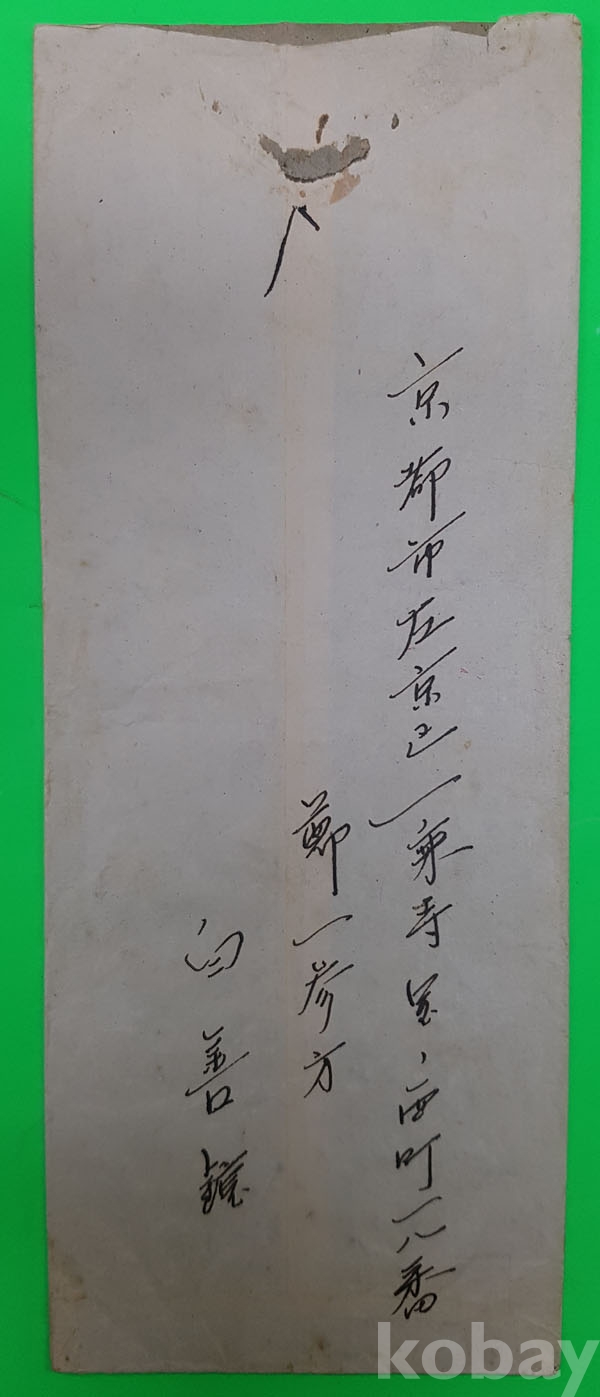 京都市左京区一乗寺里ノ西町一八番
鄭一参方
白善鎭
kobay